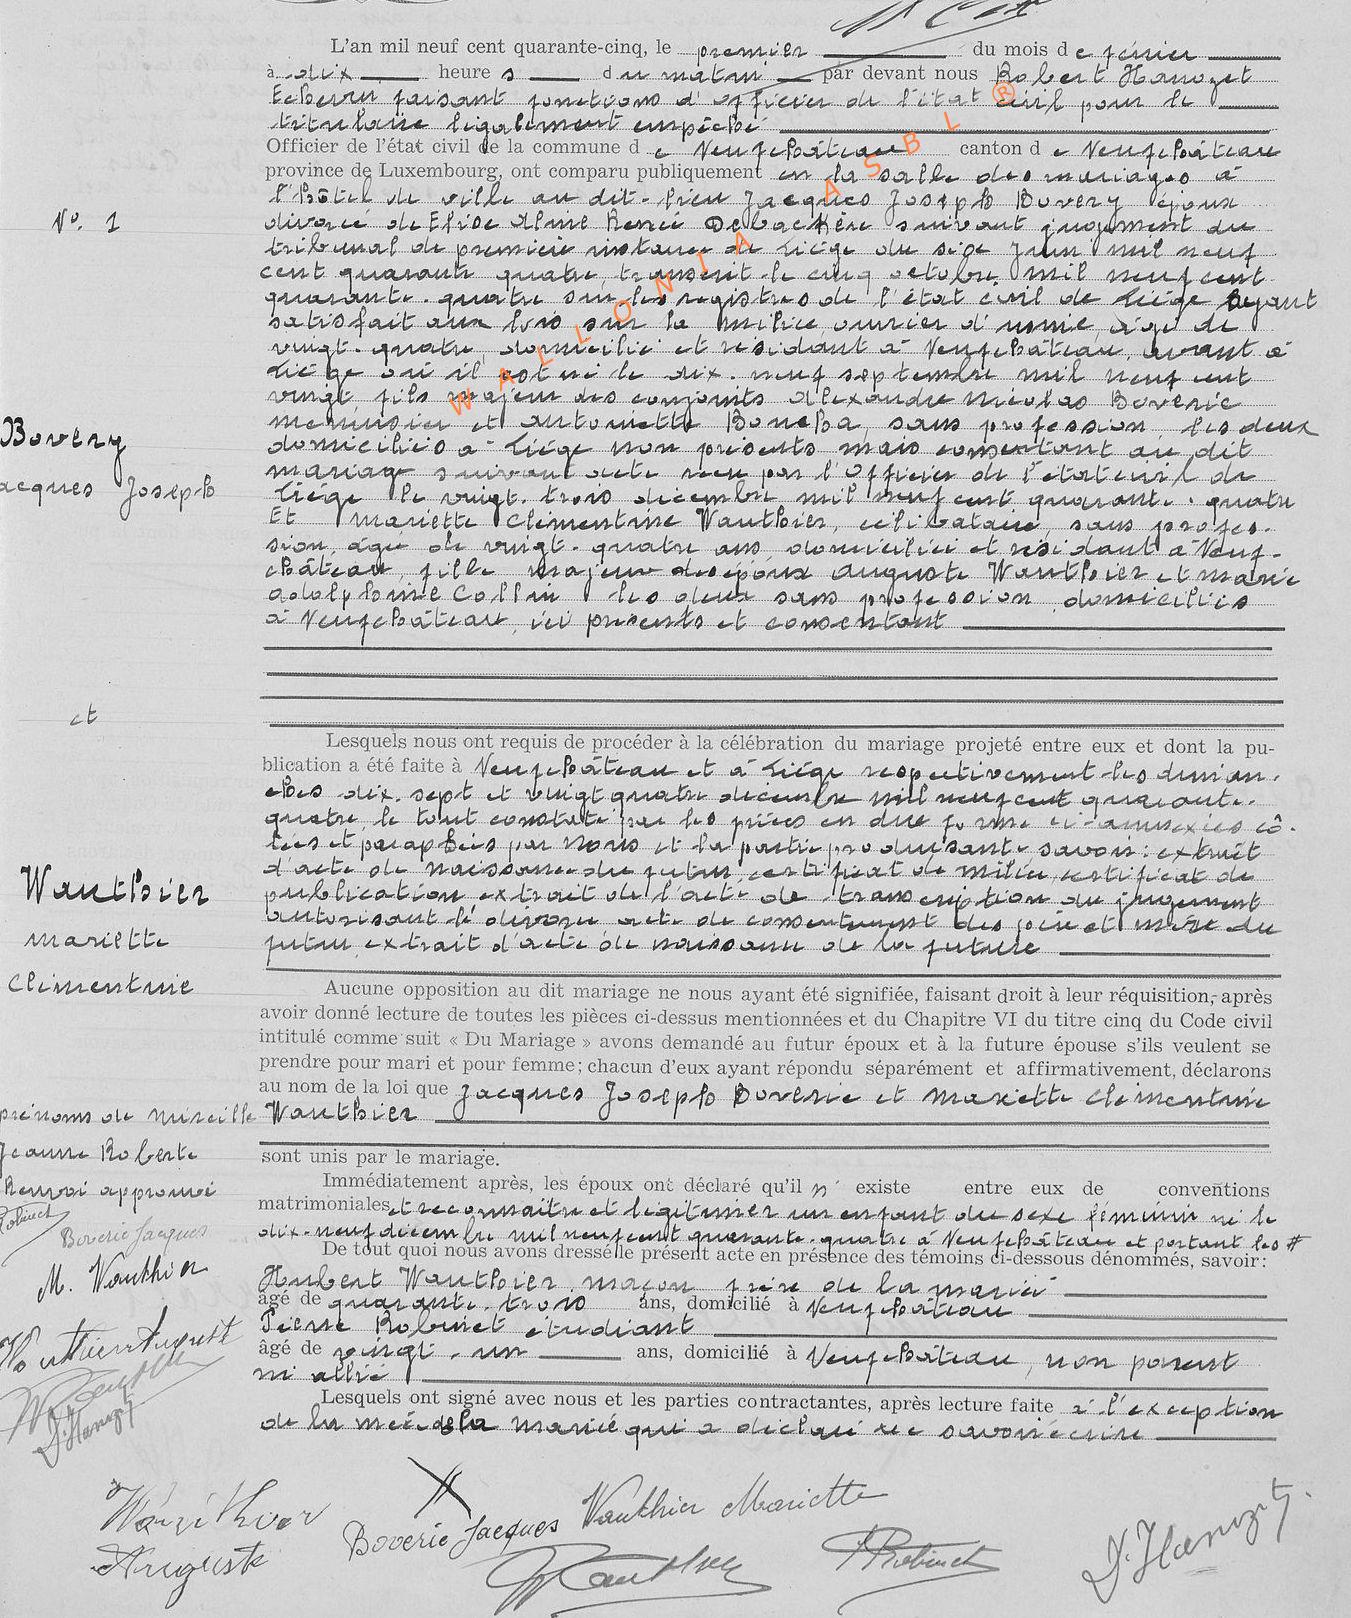 L'an mil neuf cent quarante-cinq, le premier du mois de février
à dix heures du matin par devant nous Robert Hanozet
Echevin faisant fonctions d'officier de l'état civil pour le
titulaire légalement empêché
Officier de l'état civil de la commune de Neufchâteau canton de Neufchâteau
province de Luxembourg, ont comparu publiquement en la salle des mariages à
l'hôtel de ville au dit-lieu Jacques Joseph Bovery époux
N° 1
divorcé de Elise Aline Renée Debackère suivant jugement du
tribunal de première instance de Liège du seize juin mil neuf
cent quarante quatre, transcrit le cinq octobre mil neuf cent
quarante-quatre sur les registres de l'état civil de Liège ayant
satisfait aux lois sur la milice, ouvrier d'usine, âgé de
vingt-quatre, domicilié et résidant à Neufchâteau, avant à
Liège où il est né le dix-neuf septembre mil neuf cent
vingt, fils majeur des conjoints Alexandre Nicolas Boverie
menuisier et Antoinette Boneha, sans profession, les deux
domiciliés à Liège non présents mais consentant au dit
mariage suivant acte reçu par l'Officier de l'état civil de
Liége le vingt-trois décembre mil neuf cent quarante-quatre
Bovery
Jacques Joseph
Et Mariette Clémentine Wauthier, célibataire, sans profes-
sion, âgée de vingt-quatre ans, domiciliée et résidant à Neuf-
château, fille majeure des époux Auguste Wauthier et Marie
Adolphine Collin les deux sans profession, domiciliés
à Neufchâteau, ici présents et consentant
et
Lesquels nous ont requis de procéder à la célébration du mariage projeté entre eux et dont la pu-
blication a été faite à Neufchâteau et à Liége respectivement les diman-
ches dix-sept et vingt quatre décembre mil neuf cent quarante-
quatre, le tout constaté par les pièces en due forme ci-annexées cô-
tées et paraphées par nous et la partie produisante savoir: extrait
d'acte de naissance du futur, certificat de milice, certificat de
publication, extrait de l'acte de transcription du jugement
autorisant le divorce acte de consentement des père et mère du
futur, extrait d'acte de naissance de la future
Wauthier
Mariette
Clémentine
Aucune opposition au dit mariage ne nous ayant été signifiée, faisant droit à leur réquisition, après
avoir donné lecture de toutes les pièces ci-dessus mentionnées et du Chapitre VI du titre cinq du Code civil
intitulé comme suit « Du Mariage » avons demandé au futur époux et à la future épouse s'ils veulent se
prendre pour mari et pour femme; chacun d'eux ayant répondu séparément et affirmativement, déclarons
au nom de la loi que Jacques Joseph Boverie et Mariette Clémentine
Wauthier
sont unis par le mariage.
Immédiatement après, les époux ont déclaré qu'il n' existe entre eux de conventions
matrimoniales et reconnaître et légitimer un enfant du sexe féminin né le
dix-neuf décembre mil neuf cent quarante-quatre à Neufchâteau et portant les #
prénoms de Mireille
Jeanne Roberte
Renvoi approuvé
Robinet
Boverie Jacques
M. Wauthier
Wauthier August
D. Hanozet
De tout quoi nous avons dressé le présent acte en présence des témoins ci-dessous dénommés, savoir:
Hubert Wauthier, maçon, frère de la mariée
âgé de quarante-trois ans, domicilié à Neufchâteau
Pierre Robinet étudiant
âgé de vingt-un ans, domicilié à Neufchâteau, non parent
ni allié
Lesquels ont signé avec nous et les parties contractantes, après lecture faite à l'exception
de la mère de la mariée qui a déclaré ne savoir écrire
Wauthier
Auguste
Boverie Jacques
Wauthier Mariette
Wauthier
P Robinet
D. Hanozet
WALLONIA ASBL ®